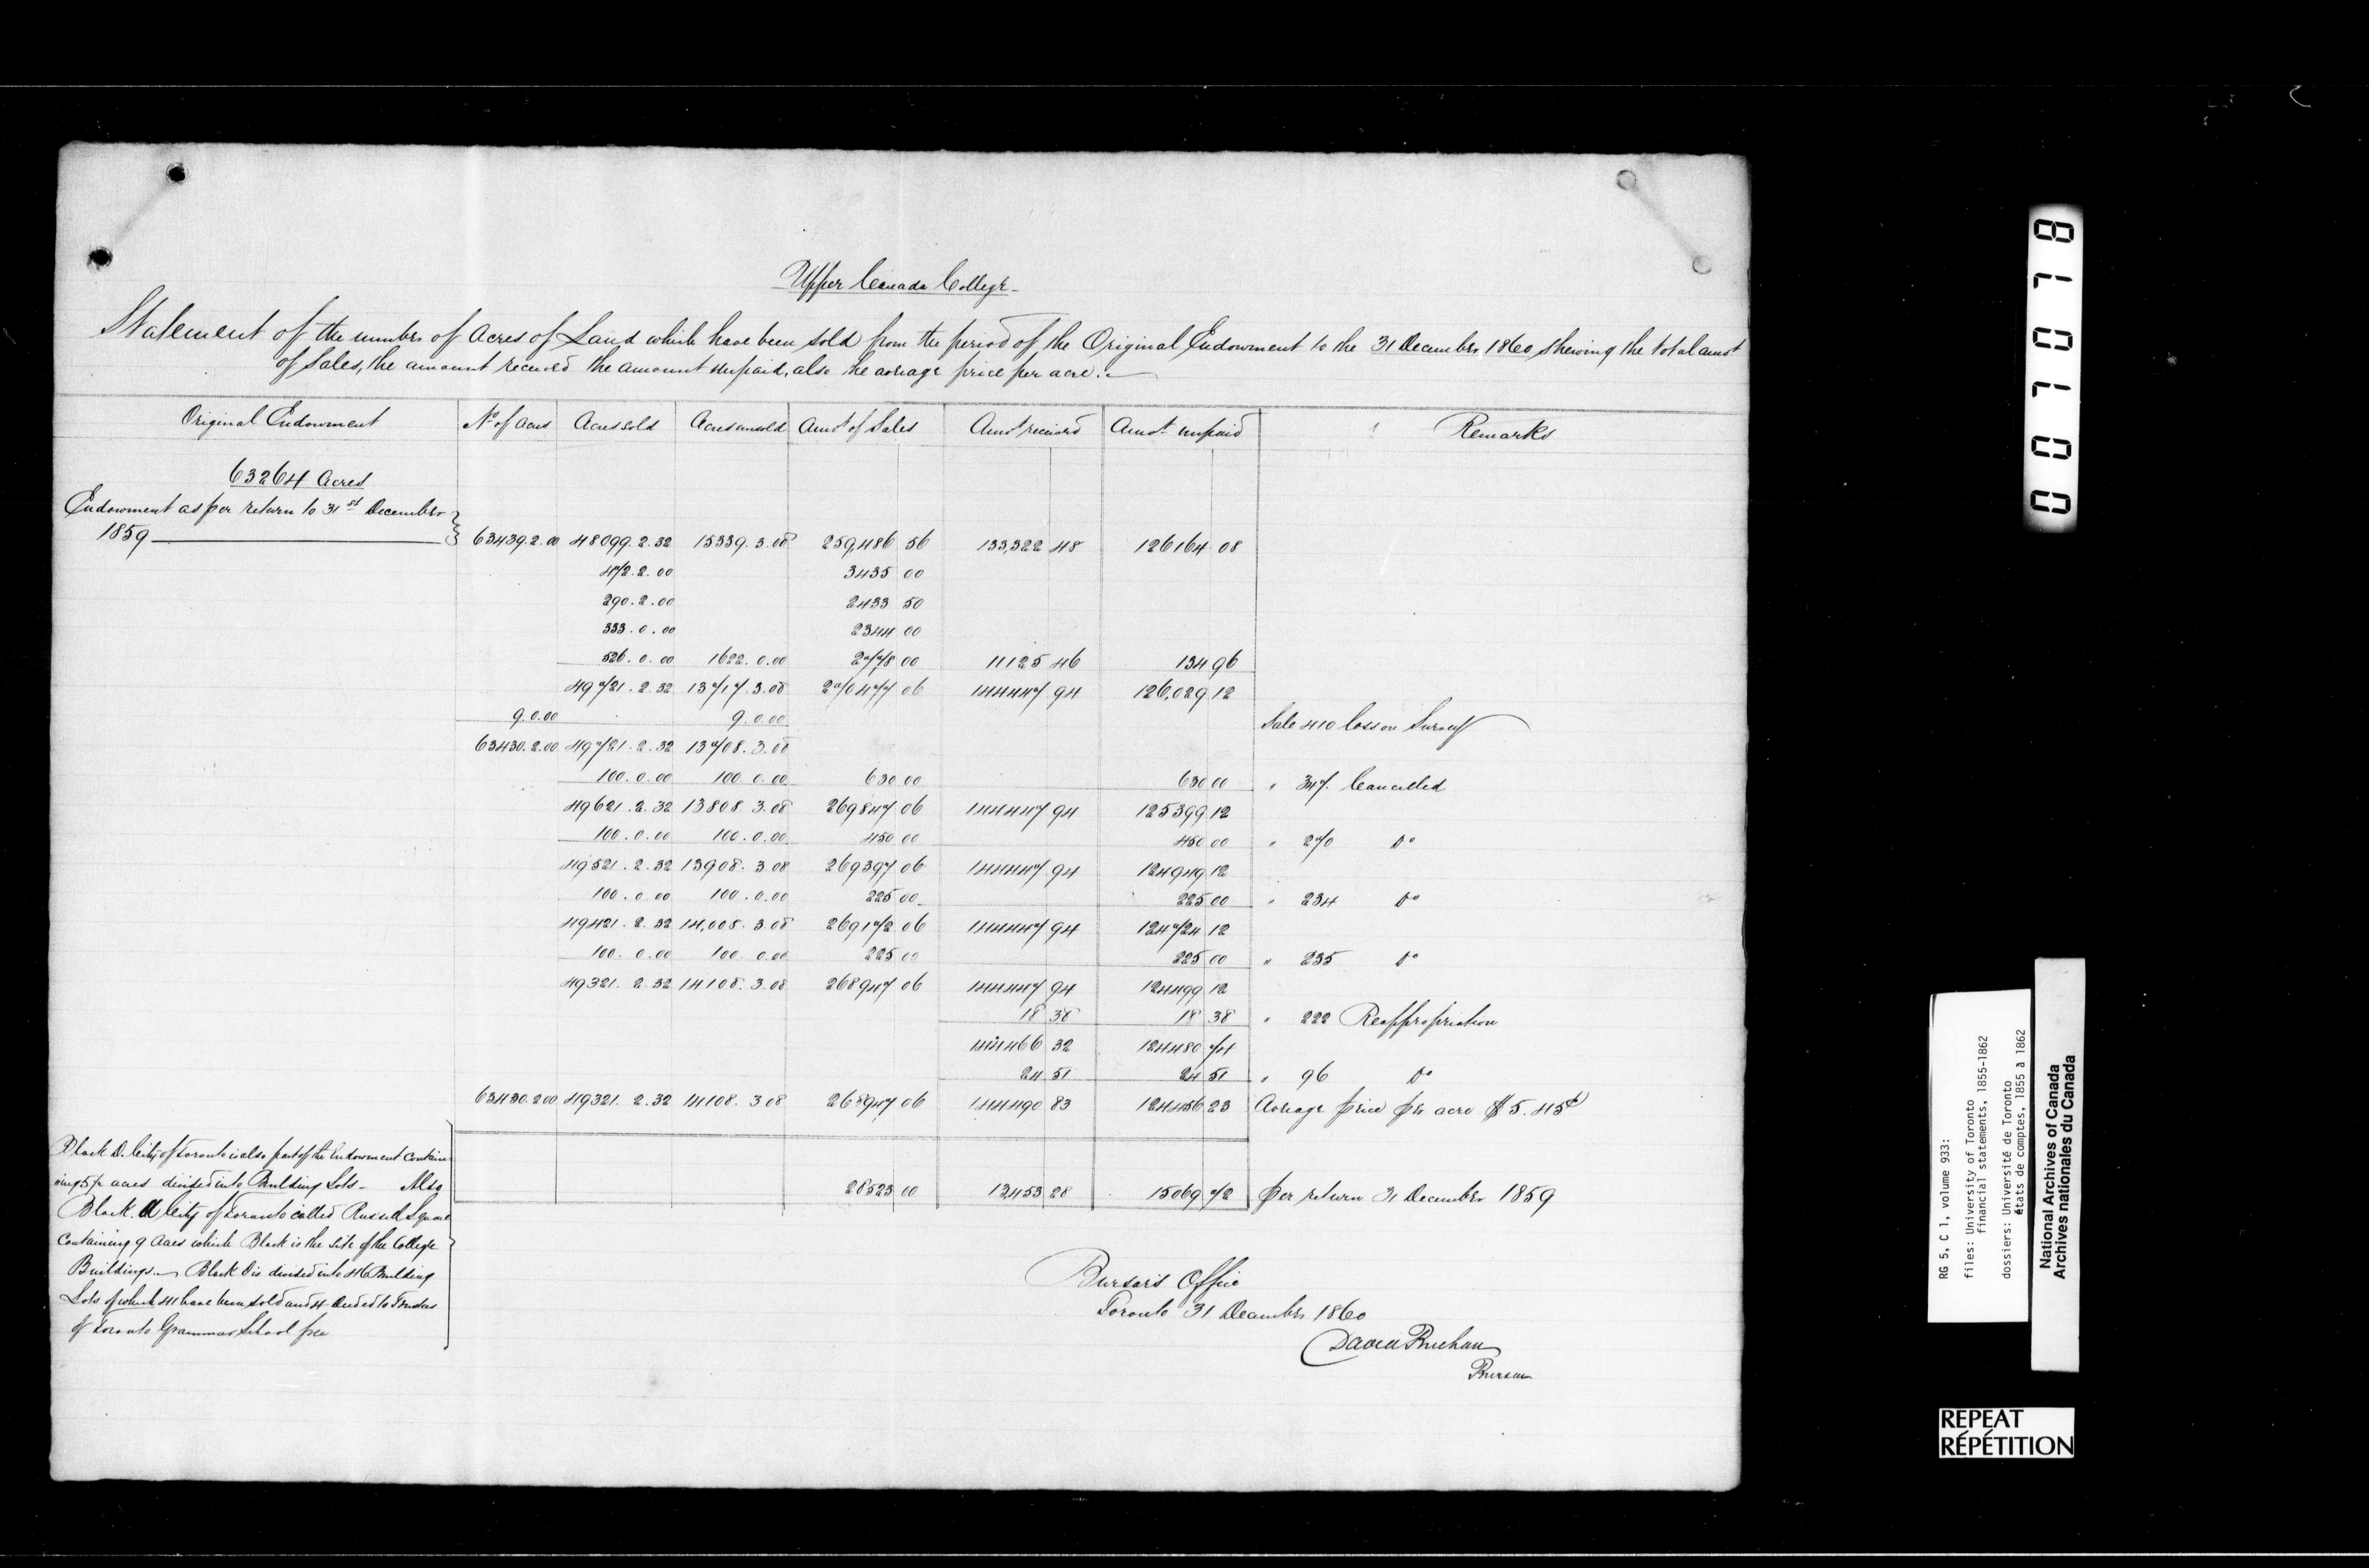 Upper Canada College
Statement of the number of Acres of Land which have been sold from the period of the Original Endowment to the 31 December 1860 shewing the total amt
of Sales, the amount received the amount unpaid, also the average price per acre.
Original Endowment No of Acres Acres sold Acres unsold Amot of Sales Amot received Amot unpaid Remarks
63264 Acres
Endowment as per return to 31st December
1859 63439.2.00 48099.2.32 15339.3.08 259,486 56 133,322 48 126164 08
472.2.00 3435 00
290.2.00 2433 50
333.0.00 2344 00
526.0.00 1622.0.00 2778 00 11125 46 134 96
49721.2.32 13717.3.08 270477 06 144447 94 126,029 12
9.0.00 9.0.00 Sale 410 loss on Survey
63430.2.00 49721.2.32 13708.3.08
100.0.00 100.0.00 630 00 630 00 " 347. Cancelled
49621.2.32 13808.3.08 269847 06 144447 94 125399 12
100.0.00 100.0.00 450 00 450 00 " 270 Do
49521.2.32 13908.3.08 269397 06 144447 94 124949 12
100.0.00 100.0.00 225 00 225 00 " 234 Do
49421.2.32 14,008.3.08 269172 06 144447 94 124724 12
100.0.00 100.0.00 225 00 225 00 " 235 Do
49321.2.32 14108.3.08 268947 06 144447 94 124499 12
18 38 18 38 " 222 Reappropriation
144466 32 124480 74
24 51 24 51 " 96 Do
63430.2.00 49321.2.32 14108.3.08 268947 06 144490 83 124456 23 Average price pr acre $5.45c
Block D. City of Toronto is also part of the Endowment contain-
ing 5½ acres divided into Building Lots - Also
Block A City of Toronto called Russell Square
28523 00 13453 28 15069 72 per return 31 December 1859
containing 9 Acres which Block is the site of the College
Buildings. Block D is divided into 46 Building
Lots of which 41 have been sold and 4 deeded to Trustees
of Toronto Grammar School free
Bursar's Office
Toronto 31 December 1860
David Buchan
Bursar
0 0 1 0 1 0 1 8
RG 5, C 1, volume 933:
files: University of Toronto
financial statements, 1855-1862
dossiers: Université de Toronto
états de comptes, 1855 à 1862
National Archives of Canada
Archives nationales du Canada
REPEAT
RÉPÉTITION